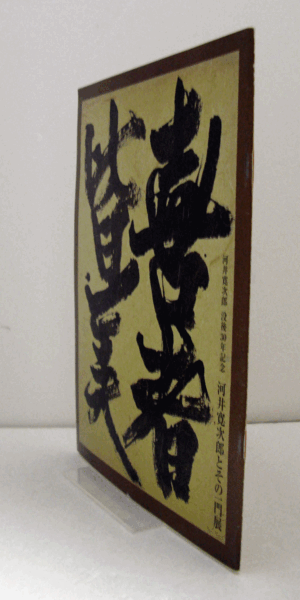 河井寛次郎 没後30年記念 河井寛次郎とその一門展
喜者
皆美